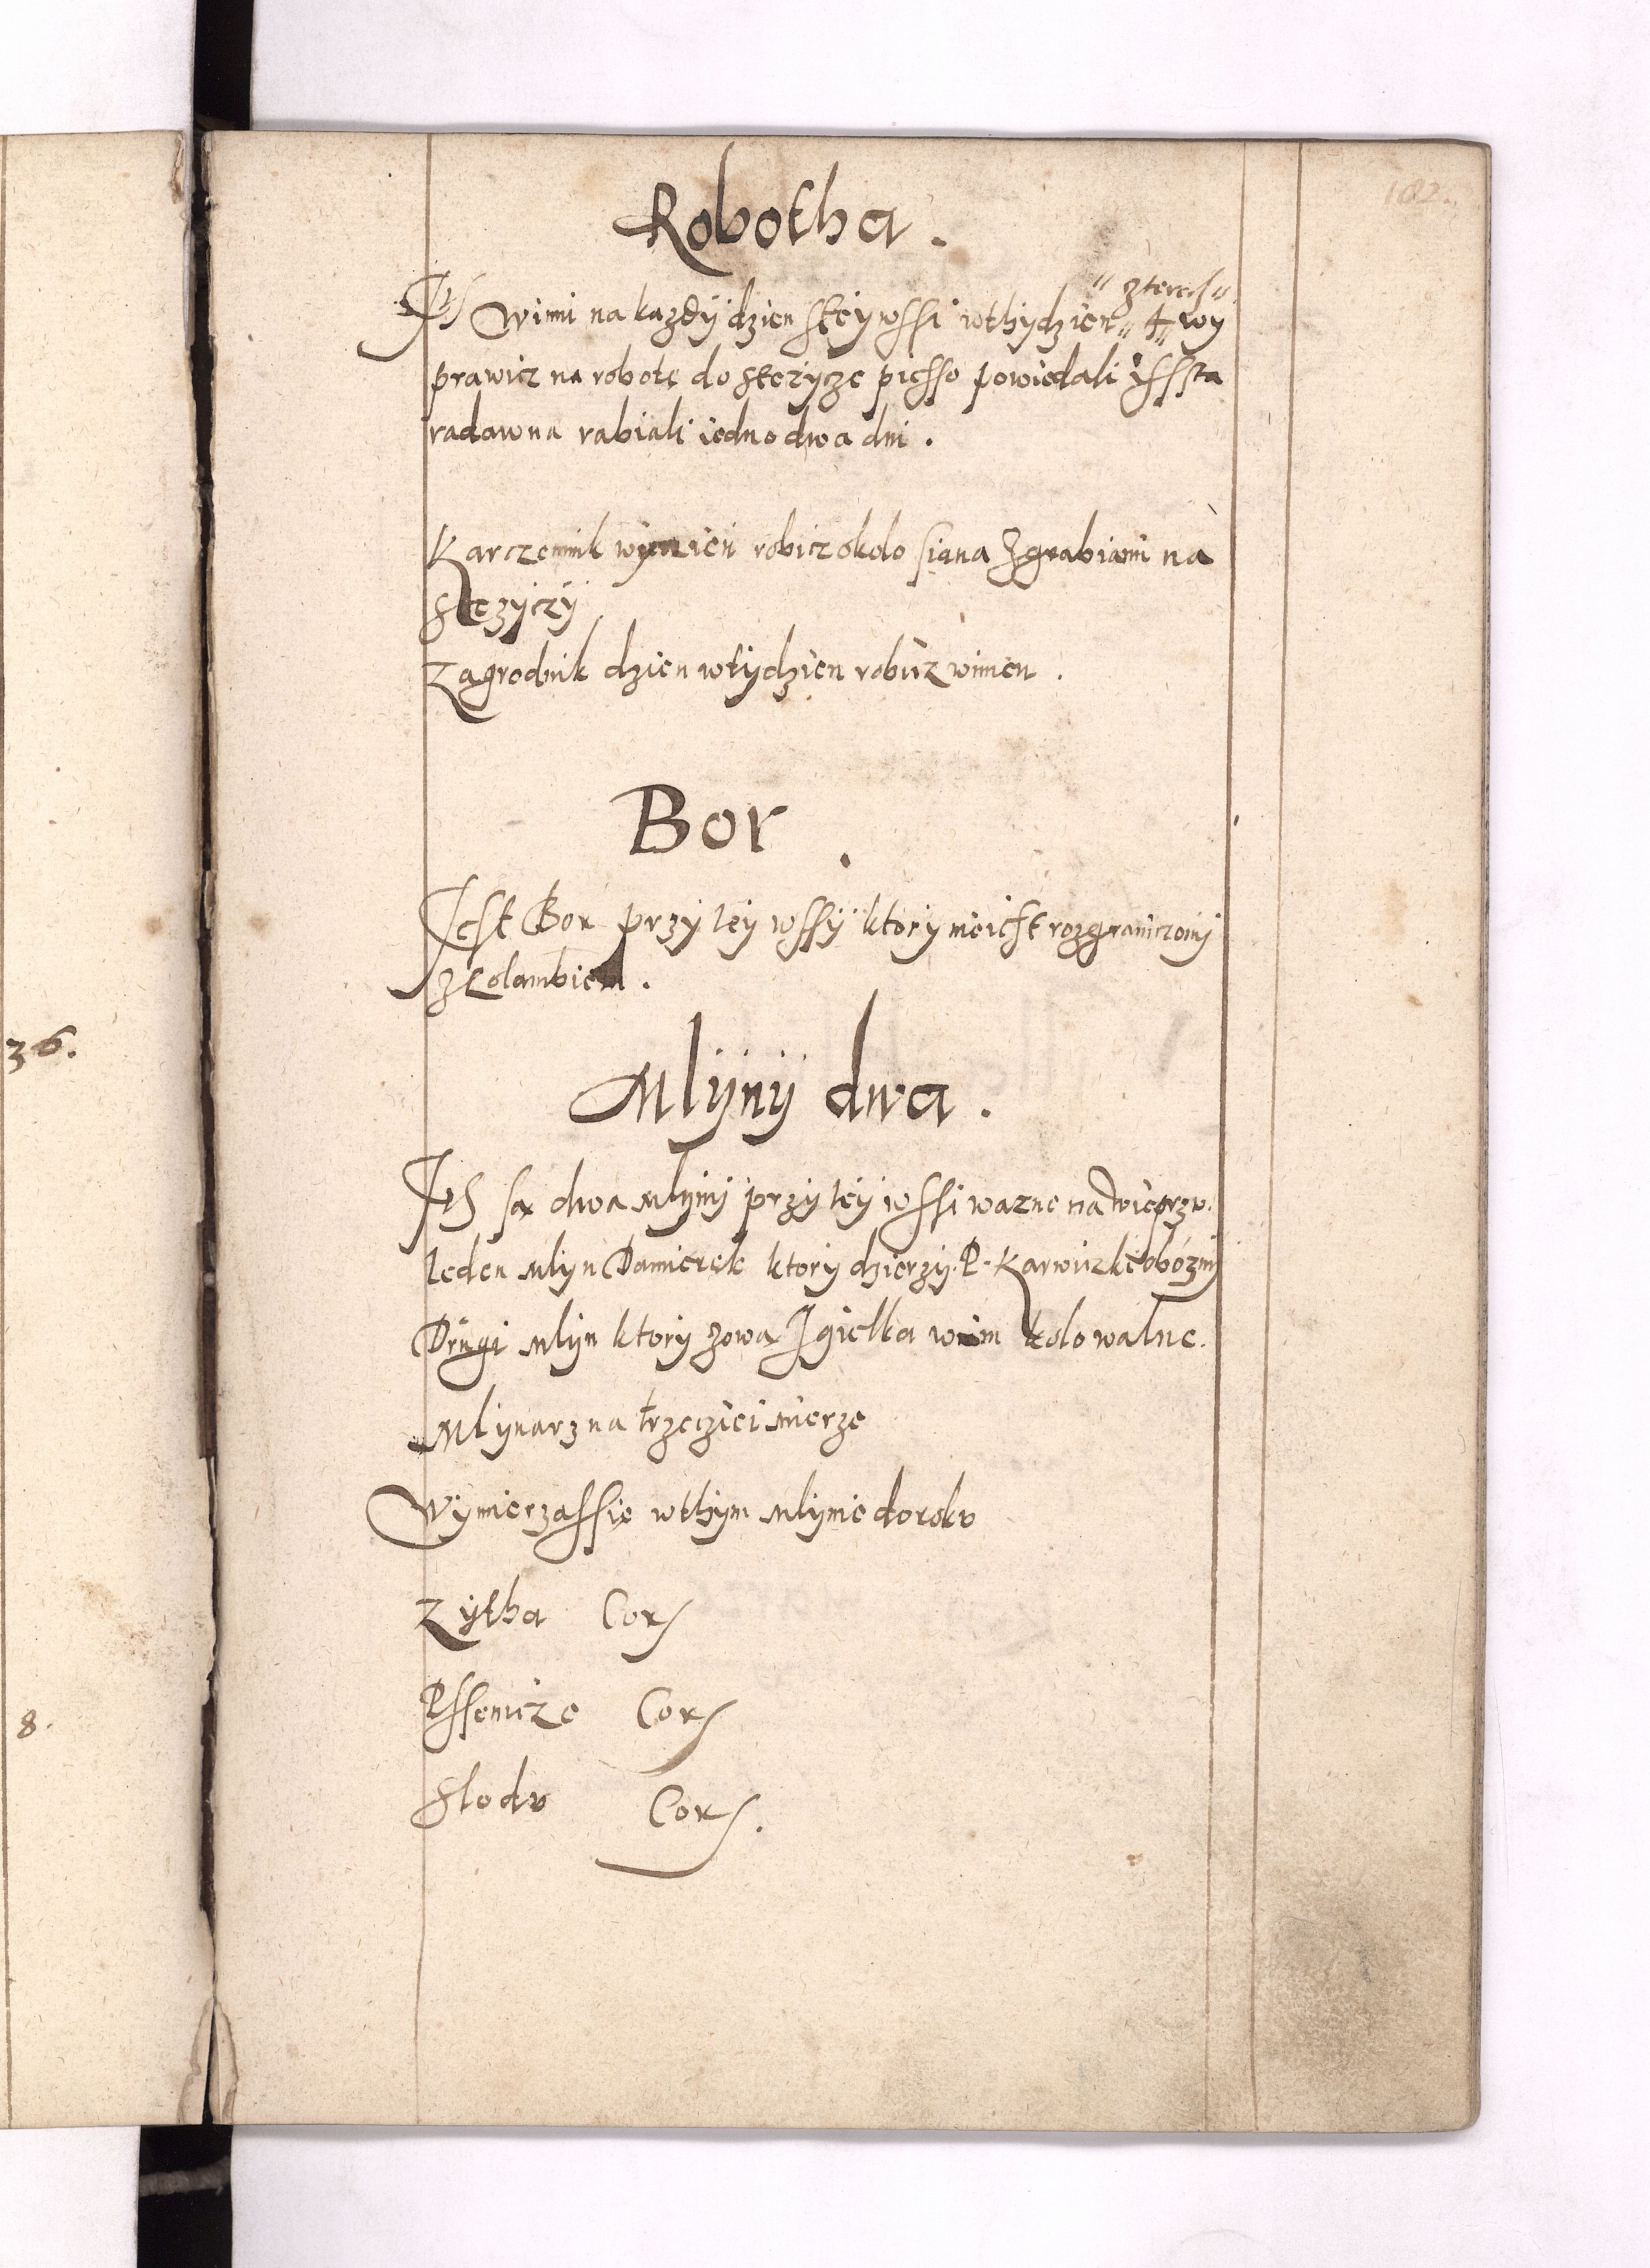 182.
Robotha.
" zterech "
Its Winni na kazdÿ dzien stey wssi wthydzien " 4 " wy
prawicz na robotę do stezycze piesso powiedali ÿsssta
radawna rabiali iedno dwa dni.
Karczemnik winien robicz okolo siana Zgrabiami na
stezyczÿ
Zagrodnik dzien wtÿdzien robicz winien.
Bor.
Jest Bor przy tey wssÿ ktorÿ nieiest rozgraniczonÿ
z Golambiem.
Mlÿnÿ dwa.
Its są dwa Mlynÿ przy teÿ wssi wazne na Wieprzv.
Ieden Mlyn Damierek ktory dzierzy. P. Karwiczkÿ oboznÿ
Drugi Mlyn ktory zowa Igielka wnim kolo walne.
Mlynarz na trzecziei mierze
Wymierza ssię wthym Mlynie do rokv
Zÿtha Cors
Pssenicze Cors
Slodv Cors.
36.
8.